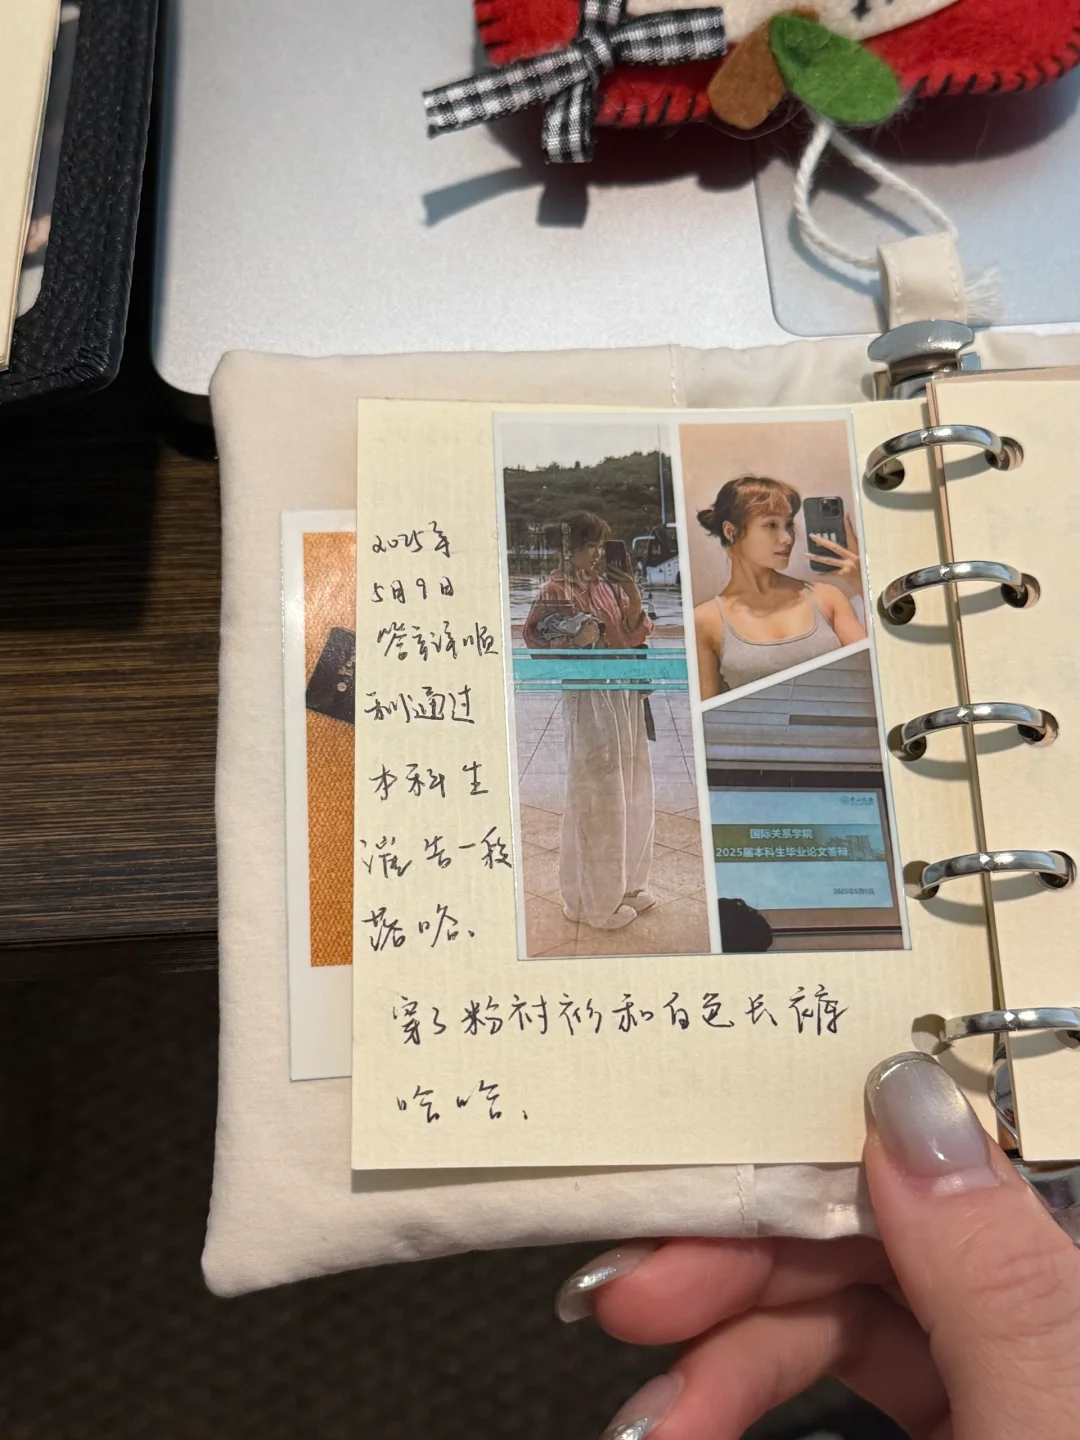 2025年
5月9日
答辩顺
利通过
本科生
涯告一段
落哈、
国际关系学院
2025届本科生毕业论文答辩
2025年5月9日
穿了粉衬衫和白色长裤
哈哈、